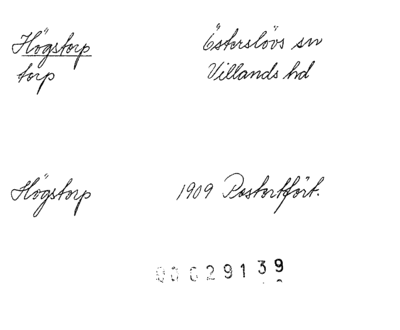 Högstorp Österslövs sn
torp Villands hd
Högstorp 1909 Postortfört.
00 029139